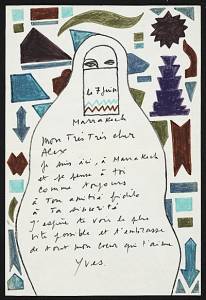 le 7 juin
Marrakech
Mon Très Très cher
Alex
je suis ici, à Marrakech
et je pense à toi
comme toujours
à Ton amitié fidèle
à Ta sincérité
J'espère te voir le plus
vite possible et t'embrasse
de tout mon cœur qui t'aime
Yves.